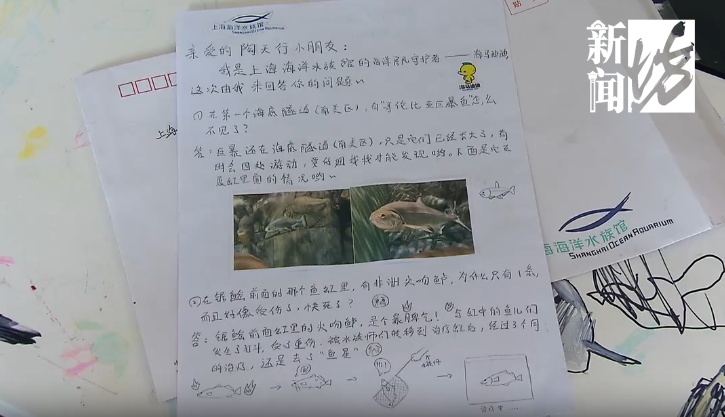 上海海洋水族馆
SHANGHAI OCEAN AQUARIUM
亲爱的陶天行小朋友：
我是上海海洋水族馆的海洋居民守护者——海马迪迪
这次由我来回答你的问题啦～
① 在第一个海底隧道(南美区)，有"哥伦比亚巨暴鱼"怎么
不见了？
答：巨暴还在海底隧道(南美区)，只是它们已经长大了，有
时会四处游动，要仔细找找才能发现哟。下面是它在
鱼缸里面的情况哟～
② 在锯鳐前面的那个鱼缸里，有非洲火吻鲈，为什么只有1条，
而且好像受伤了，快死了？
答：锯鳐前面缸里的火吻鲈，是个暴脾气！与缸中的鱼儿们
发生了打斗，受了重伤，被水族师们转移到治疗缸后，经过3个月
的治疗，还是去了"鱼星"
新闻
坊
贴
上海
海海洋水族馆
SHANGHAI OCEAN AQUARIUM